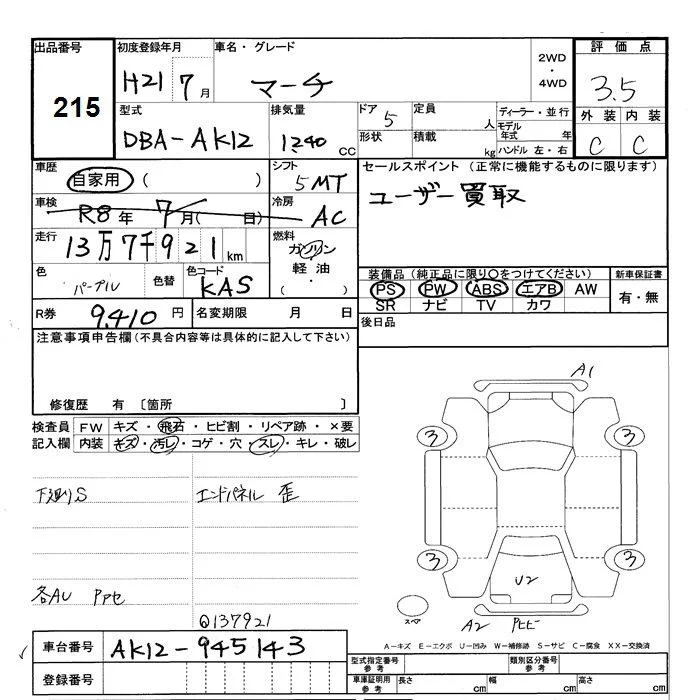 出品番号 初度登録年月 車名・グレード 2WD・4WD 評価点
215 H21 7月 マーチ 3.5
型式 排気量 ドア 5 定員 人 ディーラー・並行 外装 内装
DBA-AK12 1240 CC 形状 積載 kg モデル年式 年 C C
ハンドル 左・右
車歴 自家用 ( ) シフト 5MT セールスポイント (正常に機能するものに限ります)
車検 R8年 7月( 日) 冷房 AC ユーザー買取
走行 13万7千921km 燃料 ガソリン・軽油・( )
装備品(純正品に限り〇をつけてください) 新車保証書
色 パープル 色替 色コード KAS PS PW ABS エアB AW 有・無
SR ナビ TV カワ
R券 9,410円 名変期限 月 日 後日品
注意事項申告欄(不具合内容等は具体的に記入して下さい)
修復歴 有 〔箇所 〕
検査員 FW キズ・飛石・ヒビ割・リペア跡・×要
記入欄 内装 キズ・汚レ・コゲ・穴・スレ・キレ・破レ
下廻りS エンドパネル 歪
各AU PPセ
Q137921
A1
3 3
3 3
U2
スペア A2 Pヒビ
A-キズ E-エクボ U-凹み W-補修跡 S-サビ C-腐食 XX-交換済
車台番号 AK12-945143
型式指定番号 参考 類別区分番号 参考
登録番号 車庫証明用 参考 長さ cm 幅 cm 高さ cm